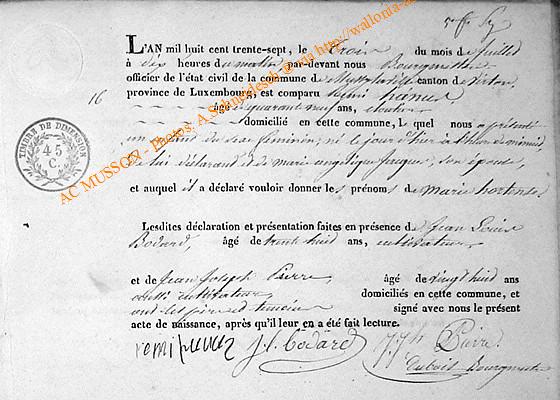 L'AN mil huit cent trente-sept, le Trois du mois de Juillet
à dix heures du matin, par-devant nous Bourgmestre
officier de l'état civil de la commune de canton de Virton,
16
province de Luxembourg, est comparu henri hanus,
âgé quarante neuf ans, cloutier
domicilié en cette commune, Lequel nous a présenté
un enfant du sexe féminin, né le jour d'hier à l'heure de minuit,
de lui déclarant et de marie angelique jacques, son épouse
et auquel il a déclaré vouloir donner les prénoms de marie hortense.
Lesdites déclaration et présentation faites en présence de Jean Louis
Bodard, âgé de trente huit ans, cultivateur
et de Jean Joseph Pierre, âgé de vingt huit ans
cultivateur, domiciliés en cette commune, et
ont les père et témoins signé avec nous le présent
acte de naissance, après qu'il leur en a été fait lecture.
henri hanus J. l. Bodard J. Jh Pierre
Dubois Bourgmestre
TIMBRE DE DIMENSION
45
C.
AC MUSSON - Photos. A. Schmideseh @ via http://wallonia-a